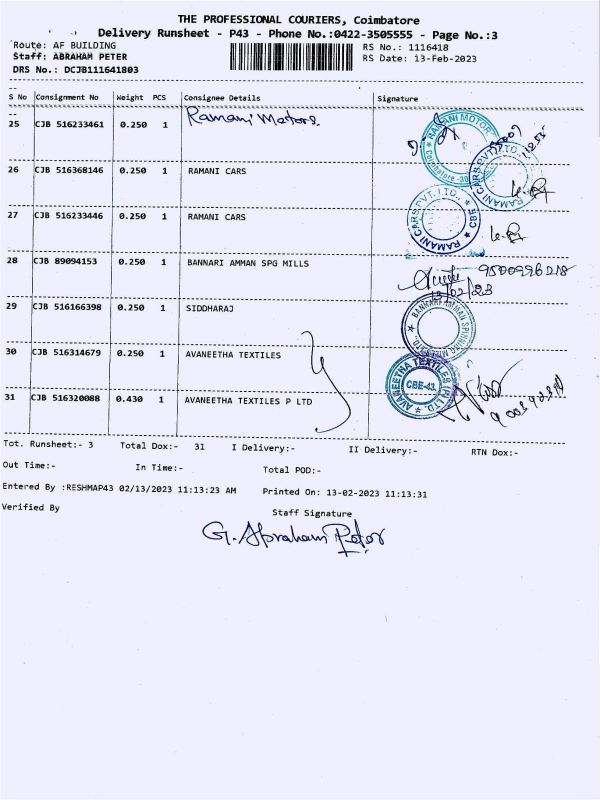 THE PROFESSIONAL COURIERS, Coimbatore
Delivery Runsheet - P43 - Phone No.:0422-3505555 - Page No.:3
Route: AF BUILDING RS No.: 1116418
Staff: ABRAHAM PETER RS Date: 13-Feb-2023
DRS No.: DCJB111641803
S No Consignment No Weight PCS Consignee Details Signature
25 CJB 516233461 0.250 1 Ramani Motors.
RAMANI MOTOR
Coimbatore
26 CJB 516368146 0.250 1 RAMANI CARS
RAMANI CARS PVT. LTD.,
27 CJB 516233446 0.250 1 RAMANI CARS
RAMANI CARS PVT. LTD., ★ CBE ★
28 CJB 89094153 0.250 1 BANNARI AMMAN SPG MILLS
9500996218
13/02/23
29 CJB 516166398 0.250 1 SIDDHARAJ
BANNARI AMMAN SPINNING MILLS LTD.
30 CJB 516314679 0.250 1 AVANEETHA TEXTILES
AVANEETHA TEXTILES (P) LTD. ★
CBE-43.
31 CJB 516320088 0.430 1 AVANEETHA TEXTILES P LTD
Tot. Runsheet:- 3 Total Dox:- 31 I Delivery:- II Delivery:- RTN Dox:-
Out Time:- In Time:- Total POD:-
Entered By :RESHMAP43 02/13/2023 11:13:23 AM Printed On: 13-02-2023 11:13:31
Verified By Staff Signature
G. Abraham Peter